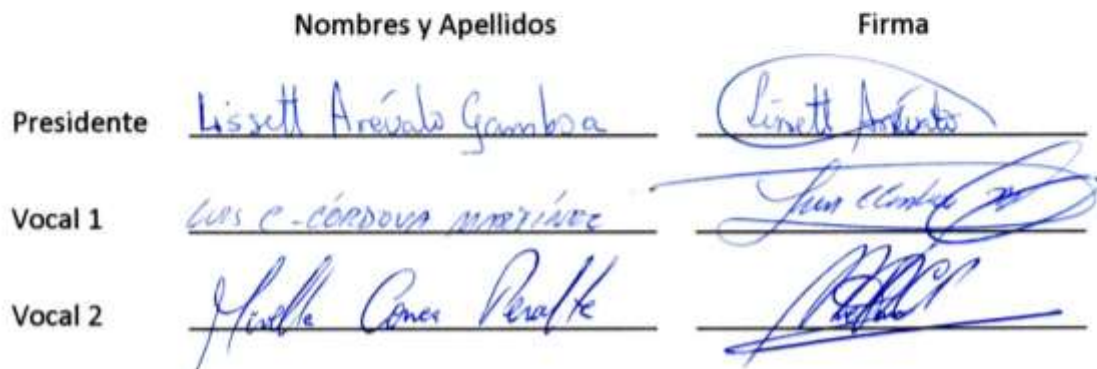 Nombres y Apellidos Firma
Presidente Lissett Arévalo Gamboa Lissett Arévalo
Vocal 1 LUIS C-CÓRDOVA MARTÍNEZ
Vocal 2 Peralte